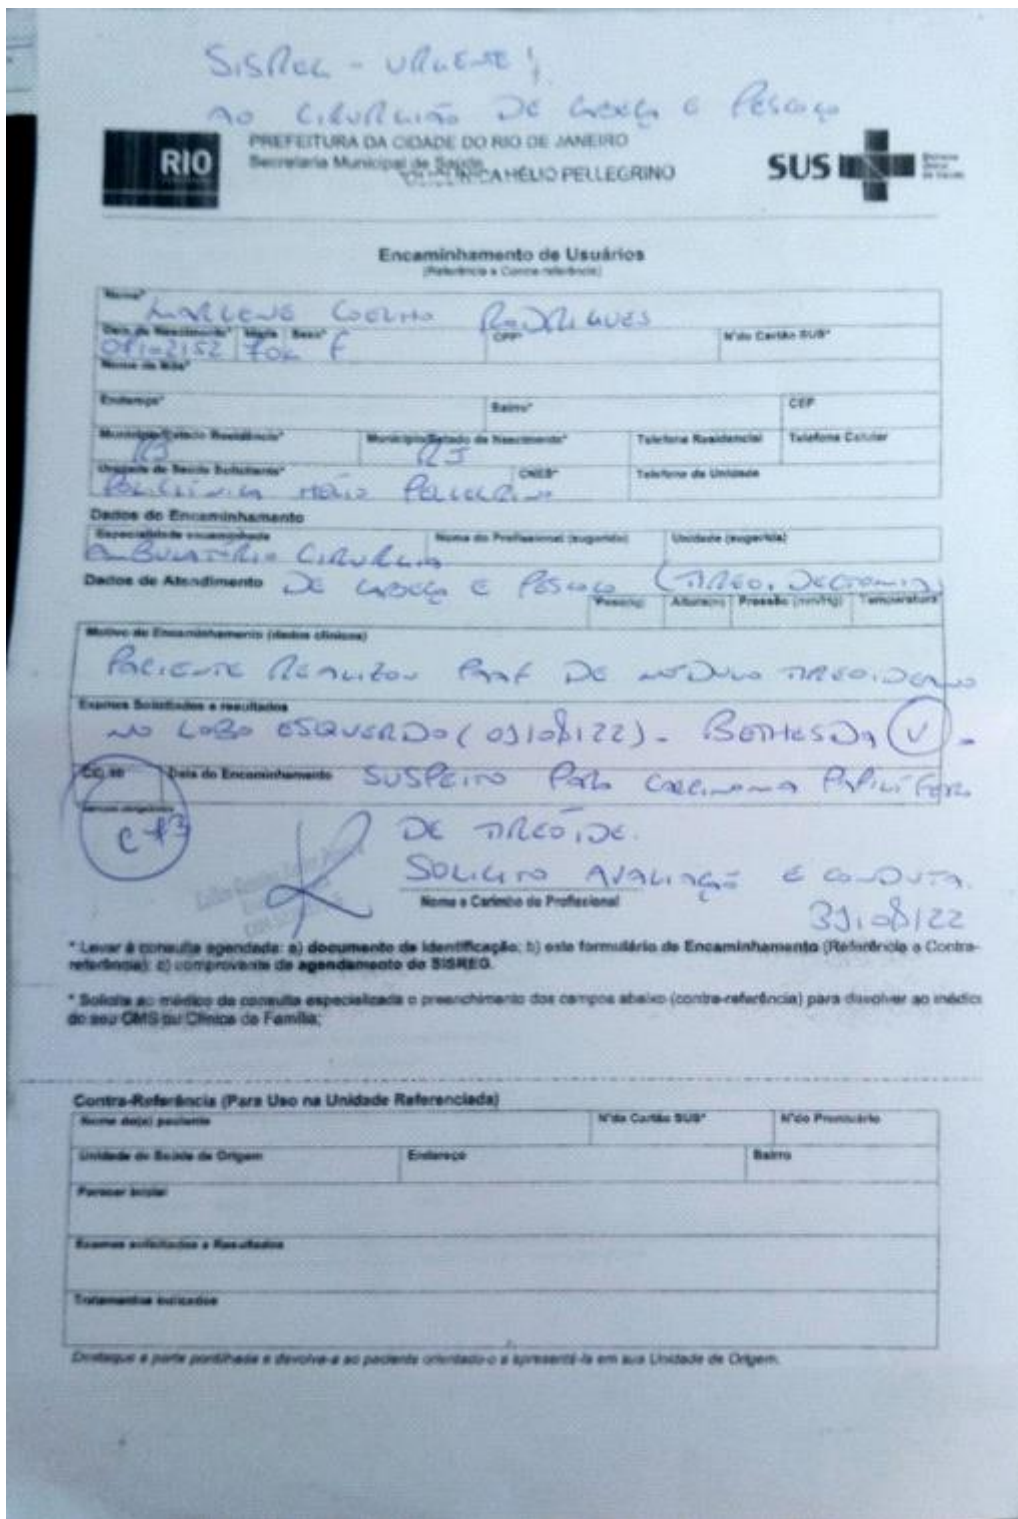 SISREG - URGENTE!
AO CIRURGIÃO DE CABEÇA E PESCOÇO
RIO
PREFEITURA DA CIDADE DO RIO DE JANEIRO
Secretaria Municipal de Saúde
HÉLIO PELLEGRINO
SUS
Encaminhamento de Usuários
(Referência e Contra-referência)
Nome*
MARLENE COELHO RODRIGUES
Data de Nascimento* Idade Sexo* CPF* N°do Cartão SUS*
F
Nome da Mãe*
Endereço* Bairro* CEP
Município/Estado Residência* Município/Estado de Nascimento* Telefone Residencial Telefone Celular
RJ RJ
Unidade de Saúde Solicitante* CNES* Telefone da Unidade
POLICLÍNICA HÉLIO PELLEGRINO
Dados do Encaminhamento
Especialidade encaminhada Nome do Profissional (sugerido) Unidade (sugerida)
AMBULATÓRIO CIRURGIA
Dados de Atendimento DE CABEÇA E PESCOÇO (TIREOIDECTOMIA)
Peso(kg) Altura(m) Pressão (mm/Hg) Temperatura
Motivo do Encaminhamento (dados clínicos)
PACIENTE REALIZOU PAAF DE NÓDULO TIREOIDEANO
Exames Solicitados e resultados
NO LOBO ESQUERDO ( ) - BETHESDA V -
CID 10 Data do Encaminhamento SUSPEITO PARA CARCINOMA PAPILÍFERO
C73 DE TIREÓIDE.
SOLICITO AVALIAÇÃO E CONDUTA.
Nome e Carimbo do Profissional
31/08/22
* Levar à consulta agendada: a) documento de identificação; b) este formulário de Encaminhamento (Referência e Contra-
referência); c) comprovante de agendamento do SISREG.
* Solicite ao médico da consulta especializada o preenchimento dos campos abaixo (contra-referência) para devolver ao médico
do seu CMS ou Clínica da Família;
Contra-Referência (Para Uso na Unidade Referenciada)
Nome do(a) paciente N°do Cartão SUS* N°do Prontuário
Unidade de Saúde de Origem Endereço Bairro
Parecer Inicial
Exames solicitados e Resultados
Tratamentos indicados
Destaque a parte pontilhada e devolva-a ao paciente orientado-o a apresentá-la em sua Unidade de Origem.